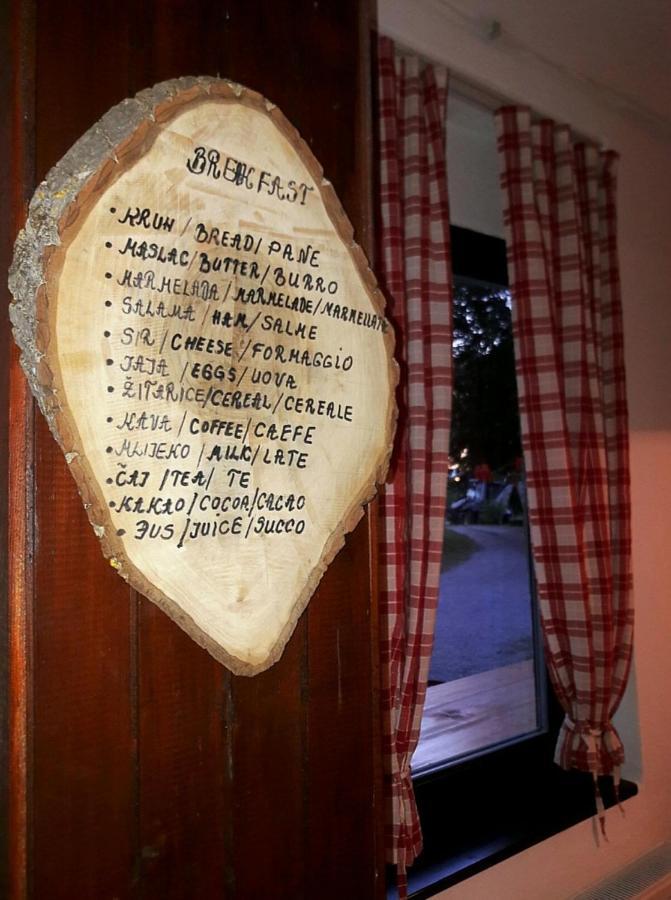 BREAKFAST
• KRUH / BREAD / PANE
• MASLAC/BUTTER/BURRO
• MARMELADA / MARMELADE/MARMELLATE
• SALAMA / HAM / SALME
• SIR / CHEESE / FORMAGGIO
• JAJA / EGGS / UOVA
• ŽITARICE/CEREAL/CEREALE
• KAVA / COFFEE/CAEFE
• MLIJEKO / MILK / LATE
• ČAJ / TEA / TE
• KAKAO / COCOA/CACAO
• JUS / JUICE / SUCCO